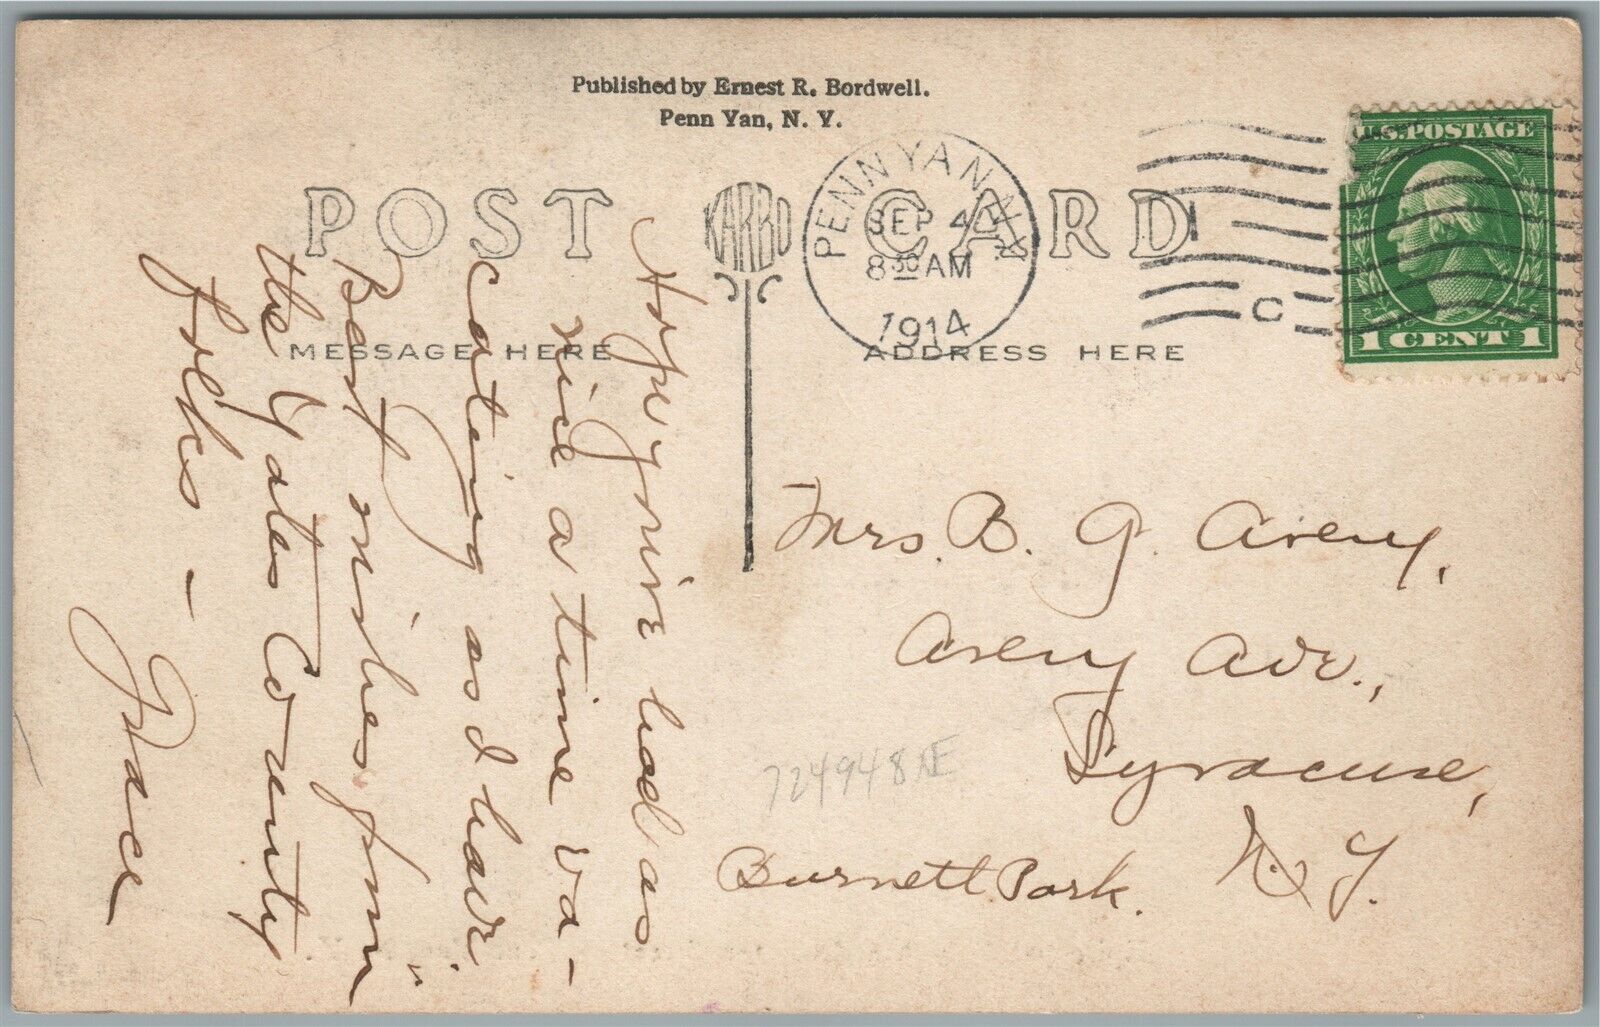 Published by Ernest R. Bordwell.
Penn Yan, N. Y.
POST CARD
KARBO
PENN YAN N.Y.
SEP 4
8 30 AM
1914
C
U.S. POSTAGE
1 CENT 1
MESSAGE HERE
ADDRESS HERE
Hope you've had as
nice a time va-
cating as I have.
Best wishes from
the Yates County
folks –
Grace
Mrs. B. G. Avery,
Avery Ave.,
Syracuse,
N. Y.
Burnett Park.
724948 NE